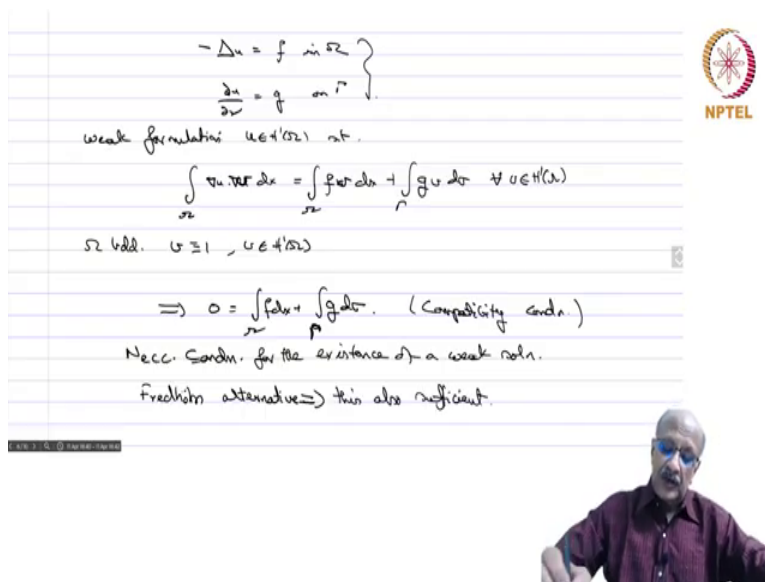 - Δu = f in Ω
∂u/∂ν = g on Γ
weak formulation u ∈ H'(Ω) st.
∫_Ω ∇u.∇v dx = ∫_Ω fv dx + ∫_Γ gv dσ ∀ v ∈ H'(Ω)
Ω bdd. v ≡ 1, v ∈ H'(Ω)
⇒ 0 = ∫_Ω f dx + ∫_Γ g dσ. (Compatibility condn.)
Necc. Condn. for the existence of a weak soln.
Fredholm alternative ⇒ this also sufficient.
NPTEL